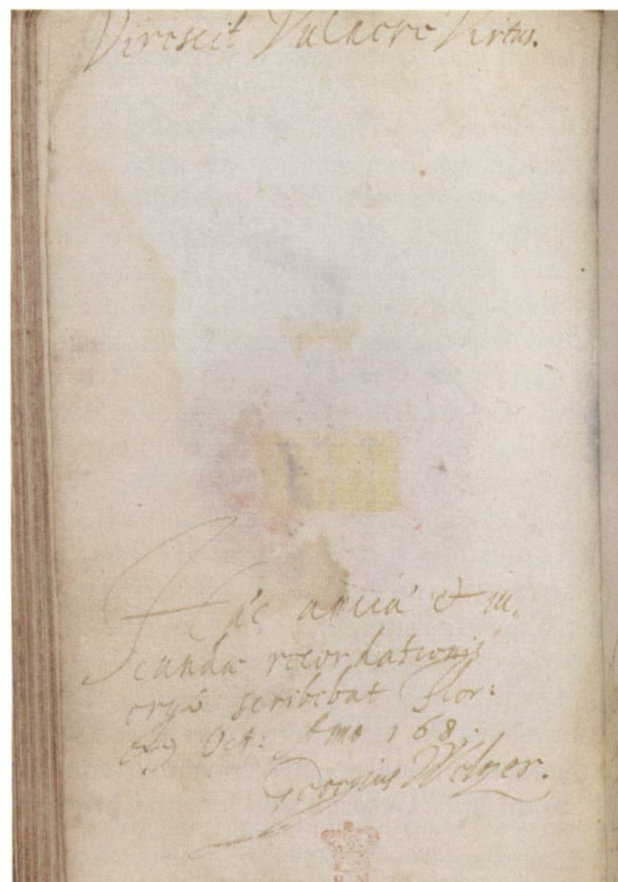 Virescit Vulnere Virtus.
Hæc amicæ & iu,
cundæ recordationis
ergò scribebat Flor:
Oct: Aṁo 168.
Georgius